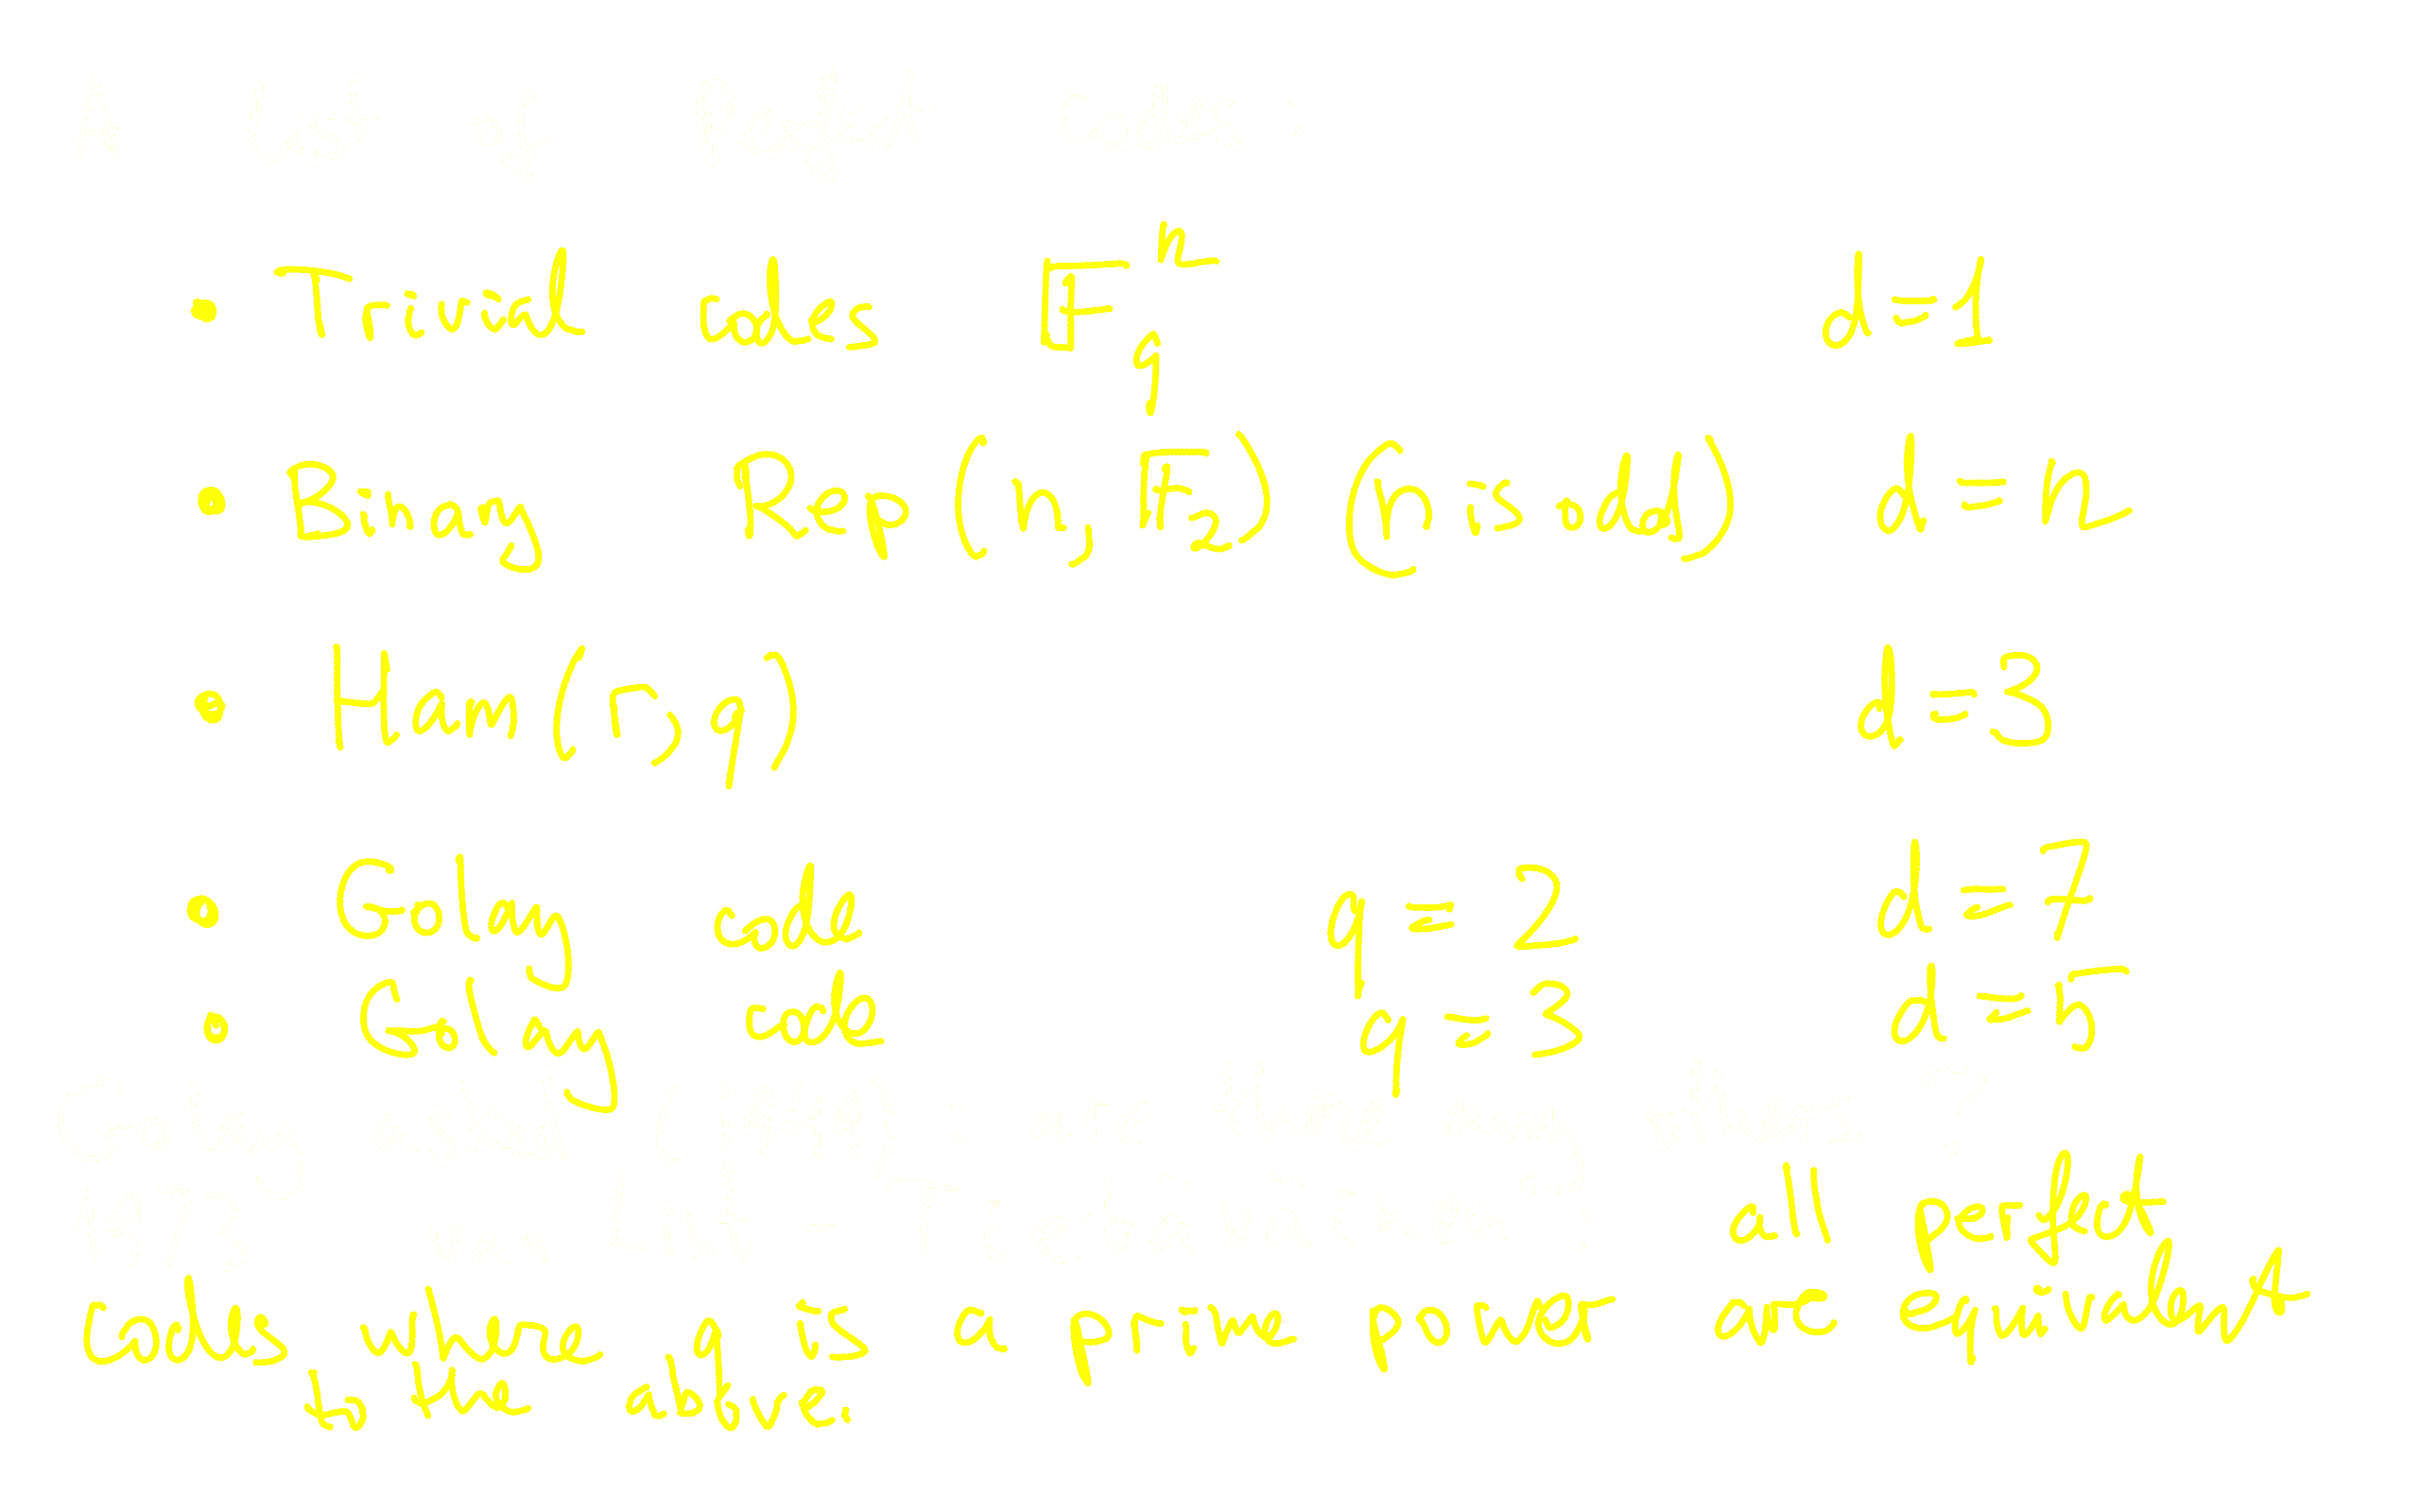 A list of Perfect Codes.
• Trivial codes 𝔽_q^n d=1
• Binary Rep(n, 𝔽_2) (n is odd) d=n
• Ham(r,q) d=3
• Golay code q=2 d=7
• Golay code q=3 d=5
Golay asked (1949): are there any others?
1973: van Lint - Tietäväinen: all perfect
codes where q is a prime power are equivalent
to the above.